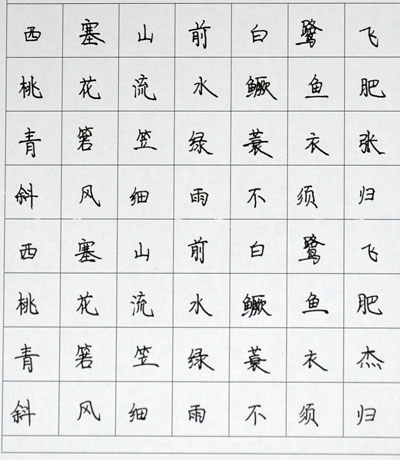 西塞山前白鹭飞
桃花流水鳜鱼肥
青箬笠绿蓑衣张
斜风细雨不须归
西塞山前白鹭飞
桃花流水鳜鱼肥
青箬笠绿蓑衣杰
斜风细雨不须归